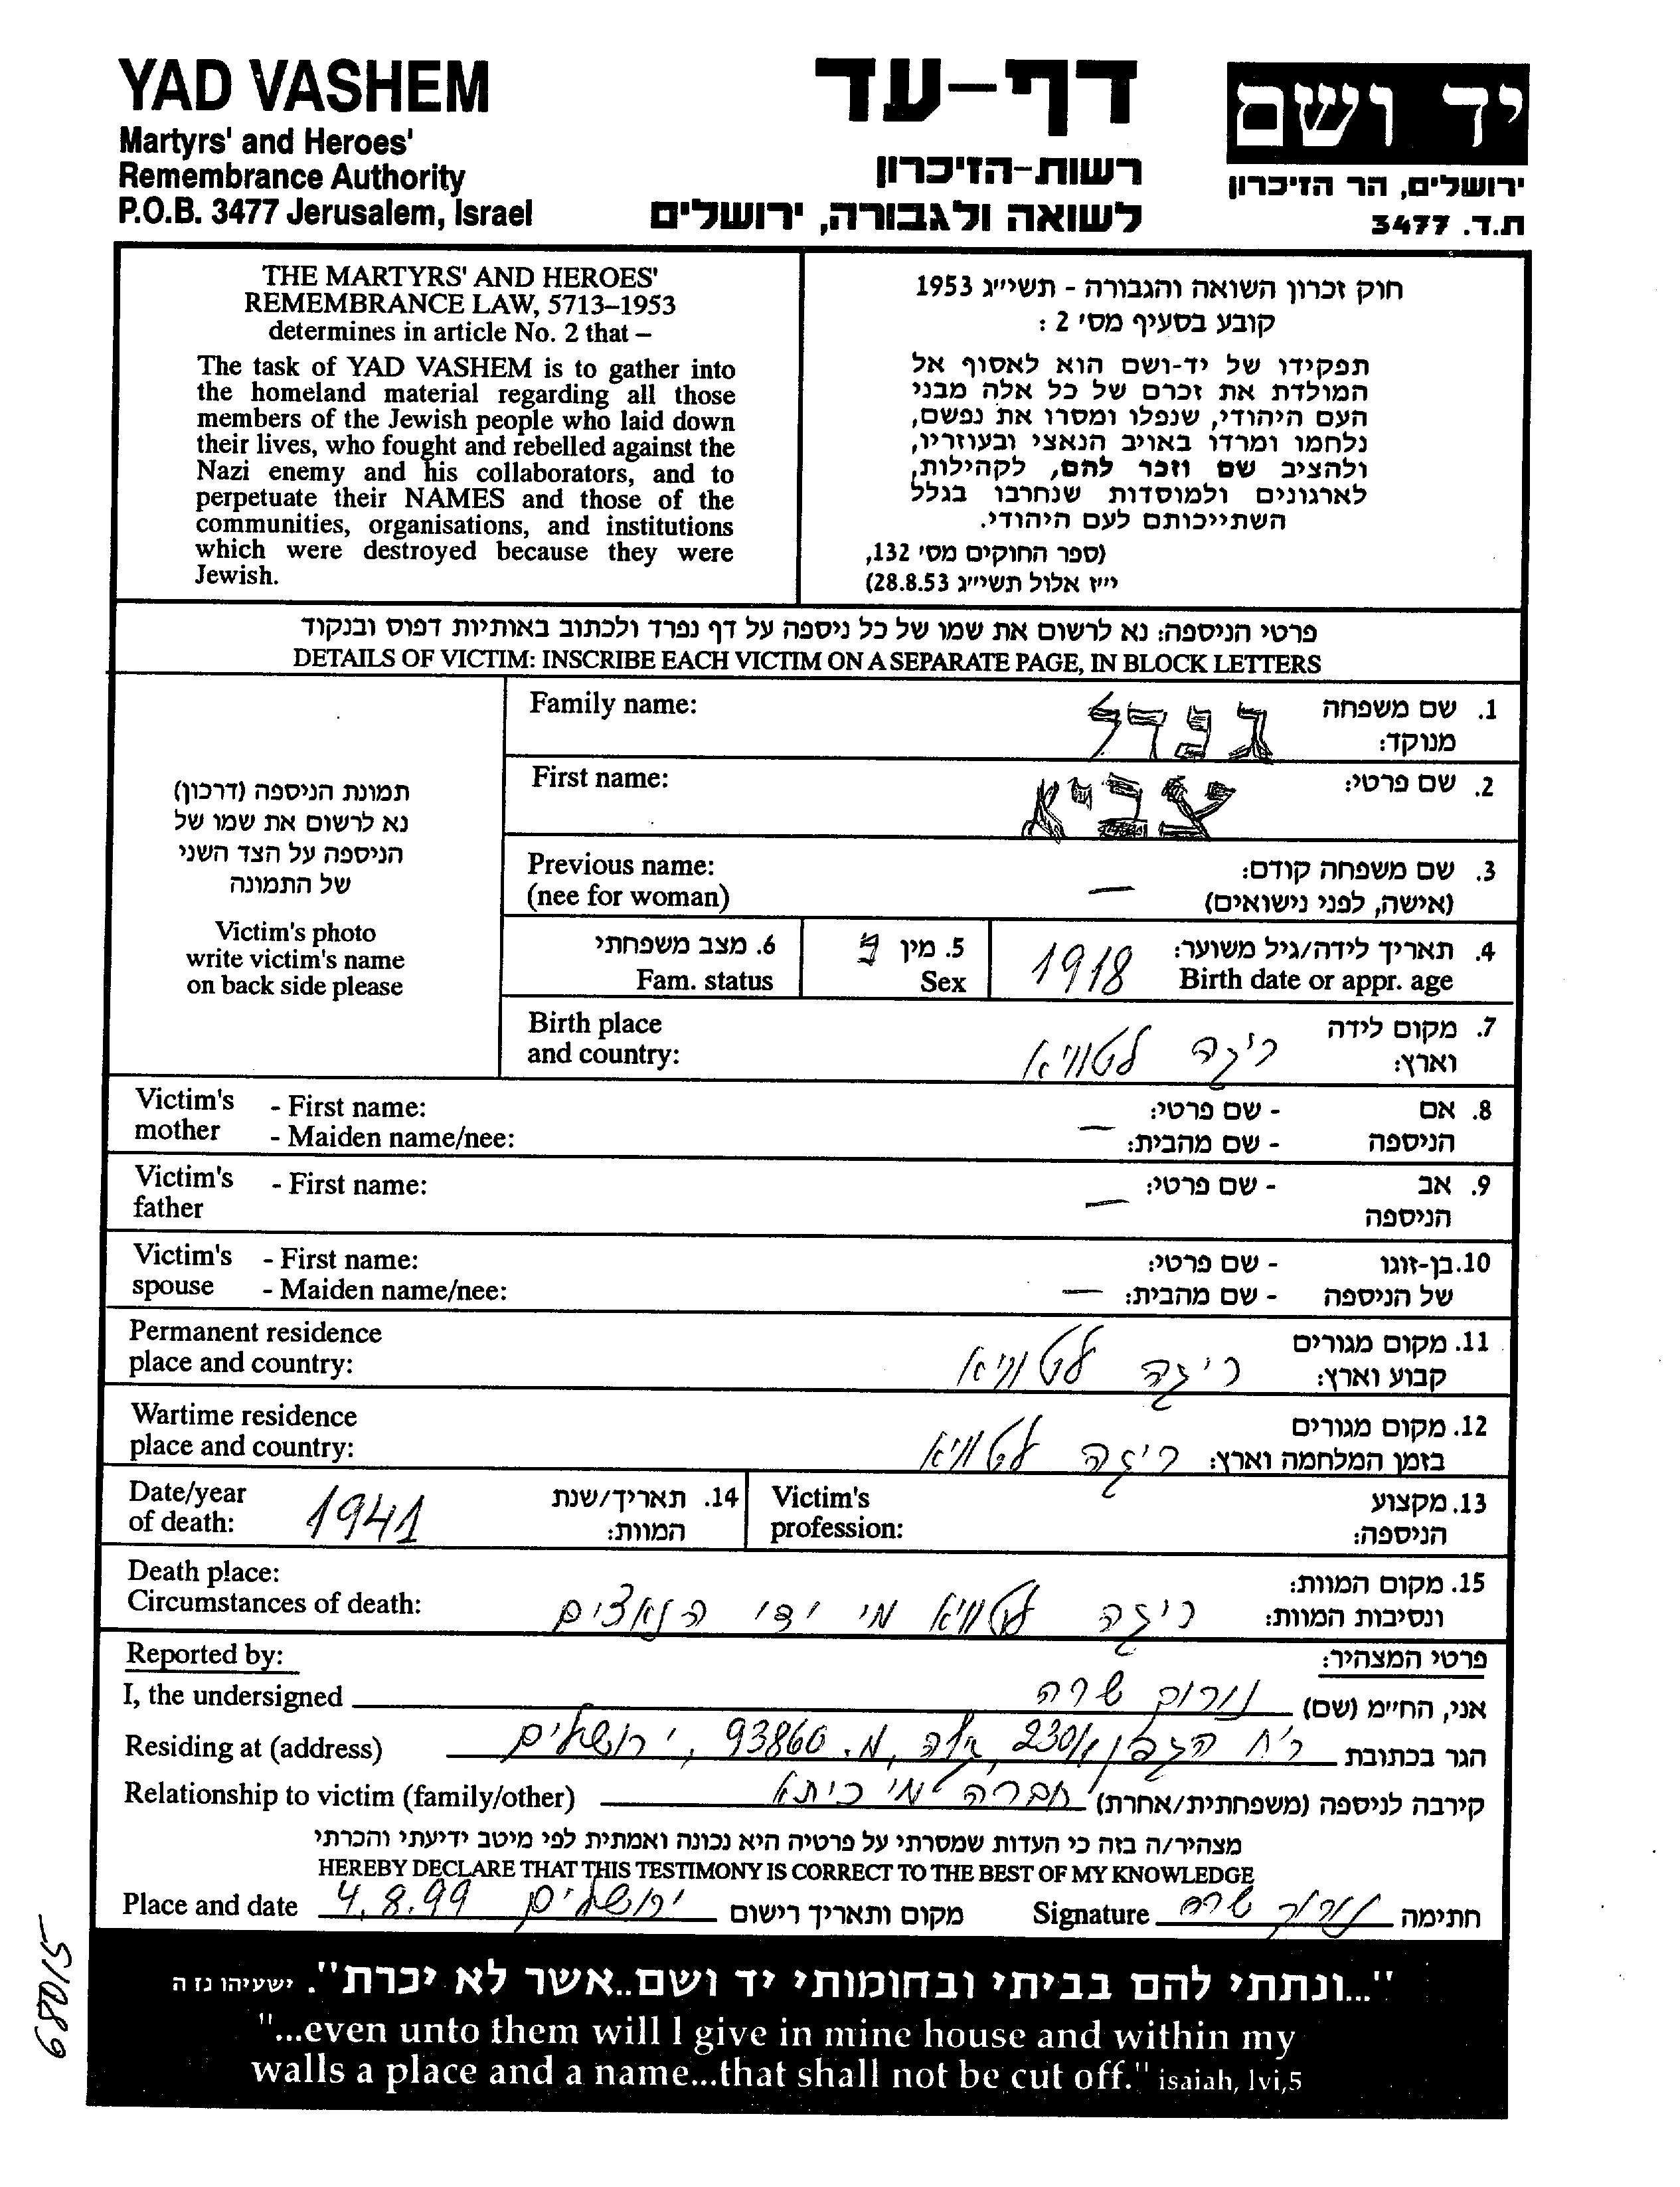 YAD VASHEM
Martyrs' and Heroes'
Remembrance Authority
P.O.B. 3477 Jerusalem, Israel
דף-עד
רשות-הזיכרון
לשואה ולגבורה, ירושלים
יד ושם
ירושלים, הר הזיכרון
ת.ד. 3477
THE MARTYRS' AND HEROES'
REMEMBRANCE LAW, 5713–1953
determines in article No. 2 that –
The task of YAD VASHEM is to gather into
the homeland material regarding all those
members of the Jewish people who laid down
their lives, who fought and rebelled against the
Nazi enemy and his collaborators, and to
perpetuate their NAMES and those of the
communities, organisations, and institutions
which were destroyed because they were
Jewish.
חוק זכרון השואה והגבורה - תשי״ג 1953
קובע בסעיף מס׳ 2 :
תפקידו של יד-ושם הוא לאסוף אל
המולדת את זכרם של כל אלה מבני
העם היהודי, שנפלו ומסרו את נפשם,
נלחמו ומרדו באויב הנאצי ובעוזריו,
ולהציב שם וזכר להם, לקהילות,
לארגונים ולמוסדות שנחרבו בגלל
השתייכותם לעם היהודי.
(ספר החוקים מס׳ 132,
י״ז אלול תשי״ג 28.8.53)
פרטי הניספה: נא לרשום את שמו של כל ניספה על דף נפרד ולכתוב באותיות דפוס ובנקוד
DETAILS OF VICTIM: INSCRIBE EACH VICTIM ON A SEPARATE PAGE, IN BLOCK LETTERS
תמונת הניספה (דרכון)
נא לרשום את שמו של
הניספה על הצד השני
של התמונה
Victim's photo
write victim's name
on back side please
Family name: 1. שם משפחה
מנוקד:
First name: צביא 2. שם פרטי:
Previous name: 3. שם משפחה קודם:
(nee for woman) — (אישה, לפני נישואים)
6. מצב משפחתי 5. מין נ 1918 4. תאריך לידה/גיל משוער:
Fam. status Sex Birth date or appr. age
Birth place 7. מקום לידה
and country: ריגה לטוויא וארץ:
Victim's - First name: - שם פרטי: 8. אם
mother - Maiden name/nee: — - שם מהבית: הניספה
Victim's - First name: — - שם פרטי: 9. אב
father הניספה
Victim's - First name: - שם פרטי: 10. בן-זוגו
spouse - Maiden name/nee: — - שם מהבית: של הניספה
Permanent residence 11. מקום מגורים
place and country: ריגה לטוויא קבוע וארץ:
Wartime residence 12. מקום מגורים
place and country: ריגה לטוויא בזמן המלחמה וארץ:
Date/year 1941 14. תאריך/שנת Victim's 13. מקצוע
of death: המוות: profession: הניספה:
Death place: 15. מקום המוות:
Circumstances of death: ריגה לטוויא מי ידי הנאצים ונסיבות המוות:
Reported by: פרטי המצהיר:
I, the undersigned שרה אני, החי״מ (שם)
Residing at (address) רח׳ הגפן 230/ גילה, מ. 93860, ירושלים הגר בכתובת
Relationship to victim (family/other) חברה מי כיתא קירבה לניספה (משפחתית/אחרת)
מצהיר/ה בזה כי העדות שמסרתי על פרטיה היא נכונה ואמתית לפי מיטב ידיעתי והכרתי
HEREBY DECLARE THAT THIS TESTIMONY IS CORRECT TO THE BEST OF MY KNOWLEDGE
Place and date ירושלים 4.8.99 מקום ותאריך רישום Signature שרה חתימה
"...ונתתי להם בביתי ובחומותי יד ושם..אשר לא יכרת". ישעיהו נז ה
"...even unto them will I give in mine house and within my
walls a place and a name...that shall not be cut off." isaiah, lvi,5
68015